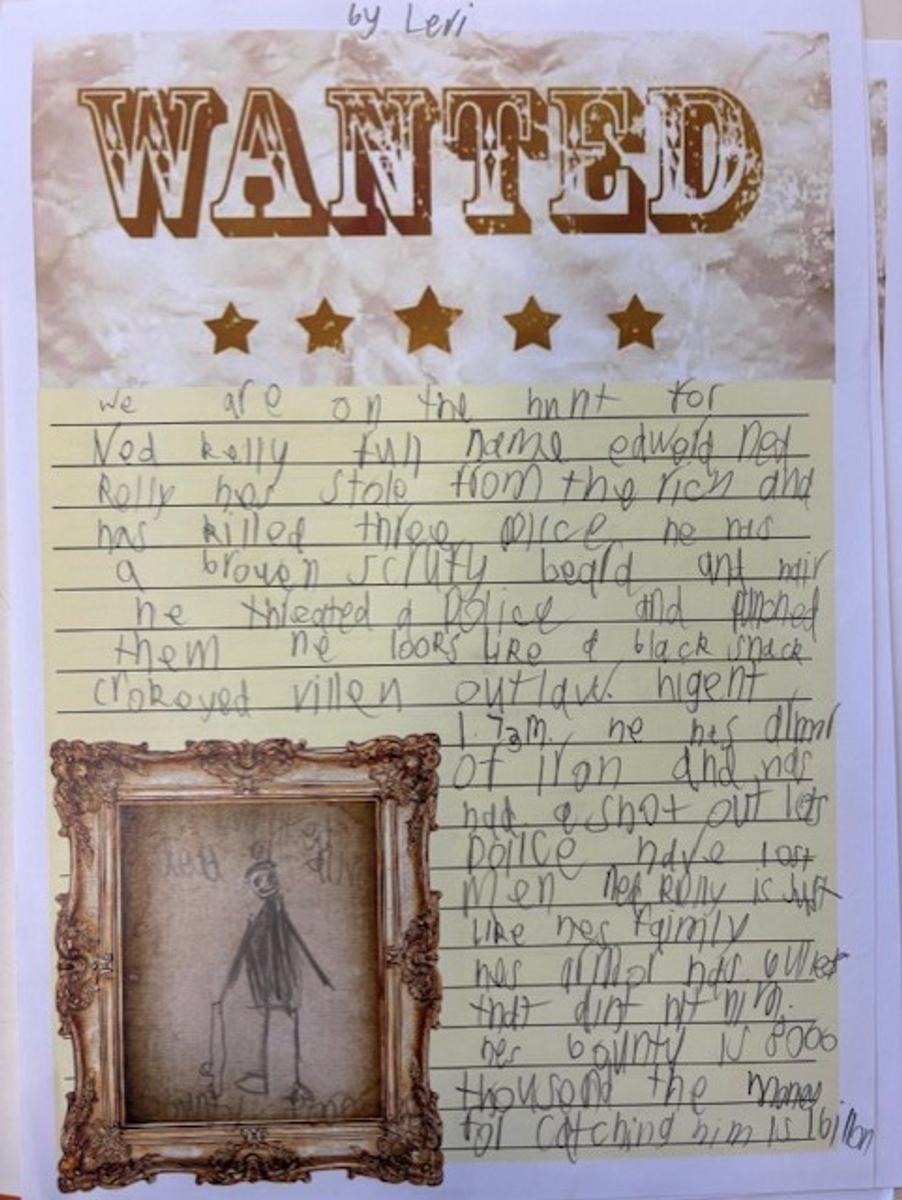 by. Levi
WANTED
we are on the hunt for
Ned kelly full name edweld Ned
kelly has stole from the rich and
has killed three police he has
a brouen scrufy beard and hair
he threated a police and punched
them he looks like a black snack
crokeyed villen outlaw. hight
1.73m. he has armr
of iron and has
had a shot out lots
police have lost
men Ned kelly is just
like hes faimly
hes armor has bullet
that dint hit him.
hes bounty is 8000
thousand the money
for catching him is 1 billon